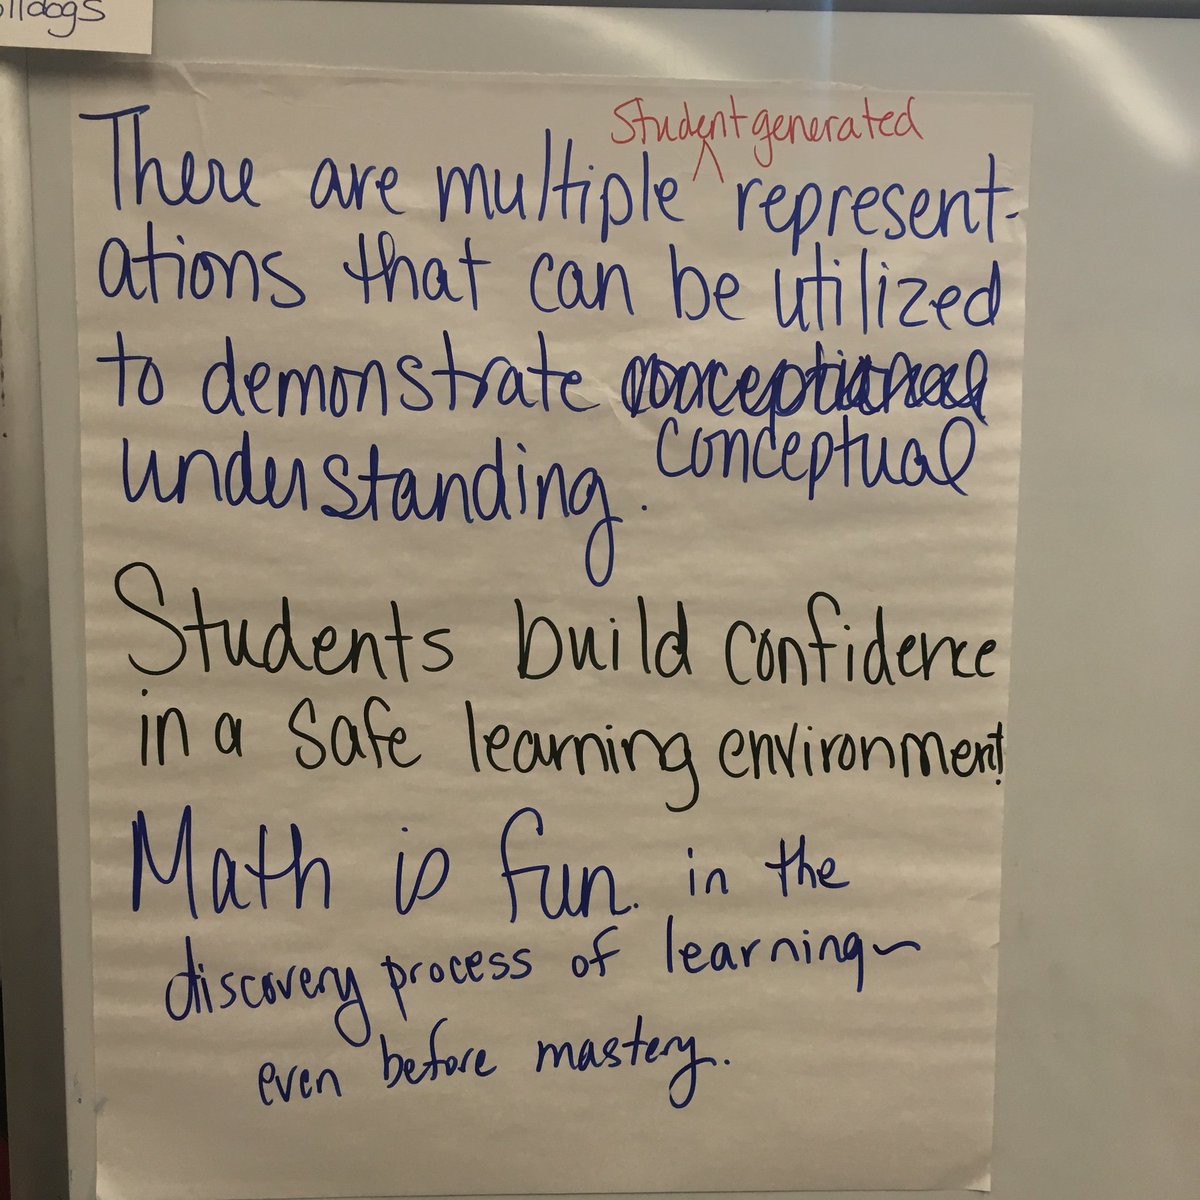 Student generated
There are multiple ^ represent-
ations that can be utilized
to demonstrate
understanding. conceptual
Students build confidence
in a safe learning environment!
Math is fun. in the
discovery process of learning~
even before mastery.